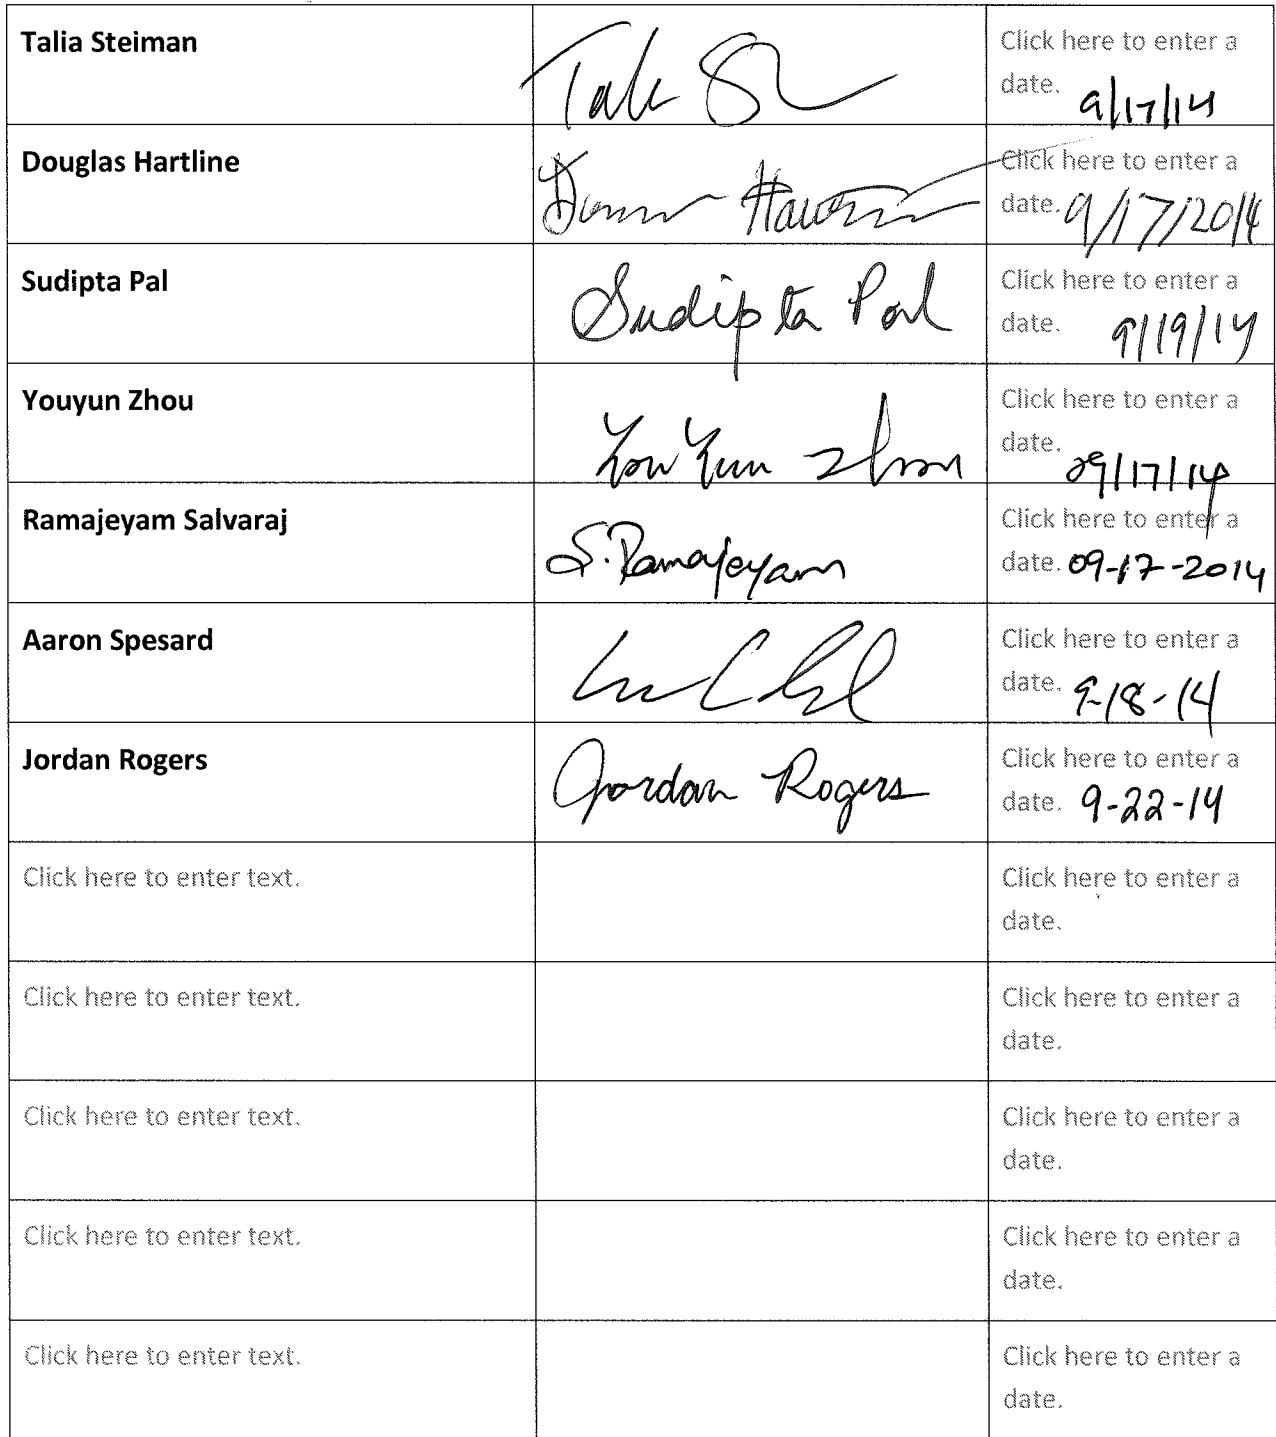 Talia Steiman
Click here to enter a
date. 9/17/14
Douglas Hartline
Click here to enter a
date. 9/17/2014
Sudipta Pal
Sudipta Pal
Click here to enter a
date. 9/19/14
Youyun Zhou
You Yun Zhou
Click here to enter a
date. 09/17/14
Ramajeyam Salvaraj
S. Ramajeyam
Click here to enter a
date. 09-17-2014
Aaron Spesard
Click here to enter a
date. 9-18-14
Jordan Rogers
Jordan Rogers
Click here to enter a
date. 9-22-14
Click here to enter text.
Click here to enter a
date.
Click here to enter text.
Click here to enter a
date.
Click here to enter text.
Click here to enter a
date.
Click here to enter text.
Click here to enter a
date.
Click here to enter text.
Click here to enter a
date.